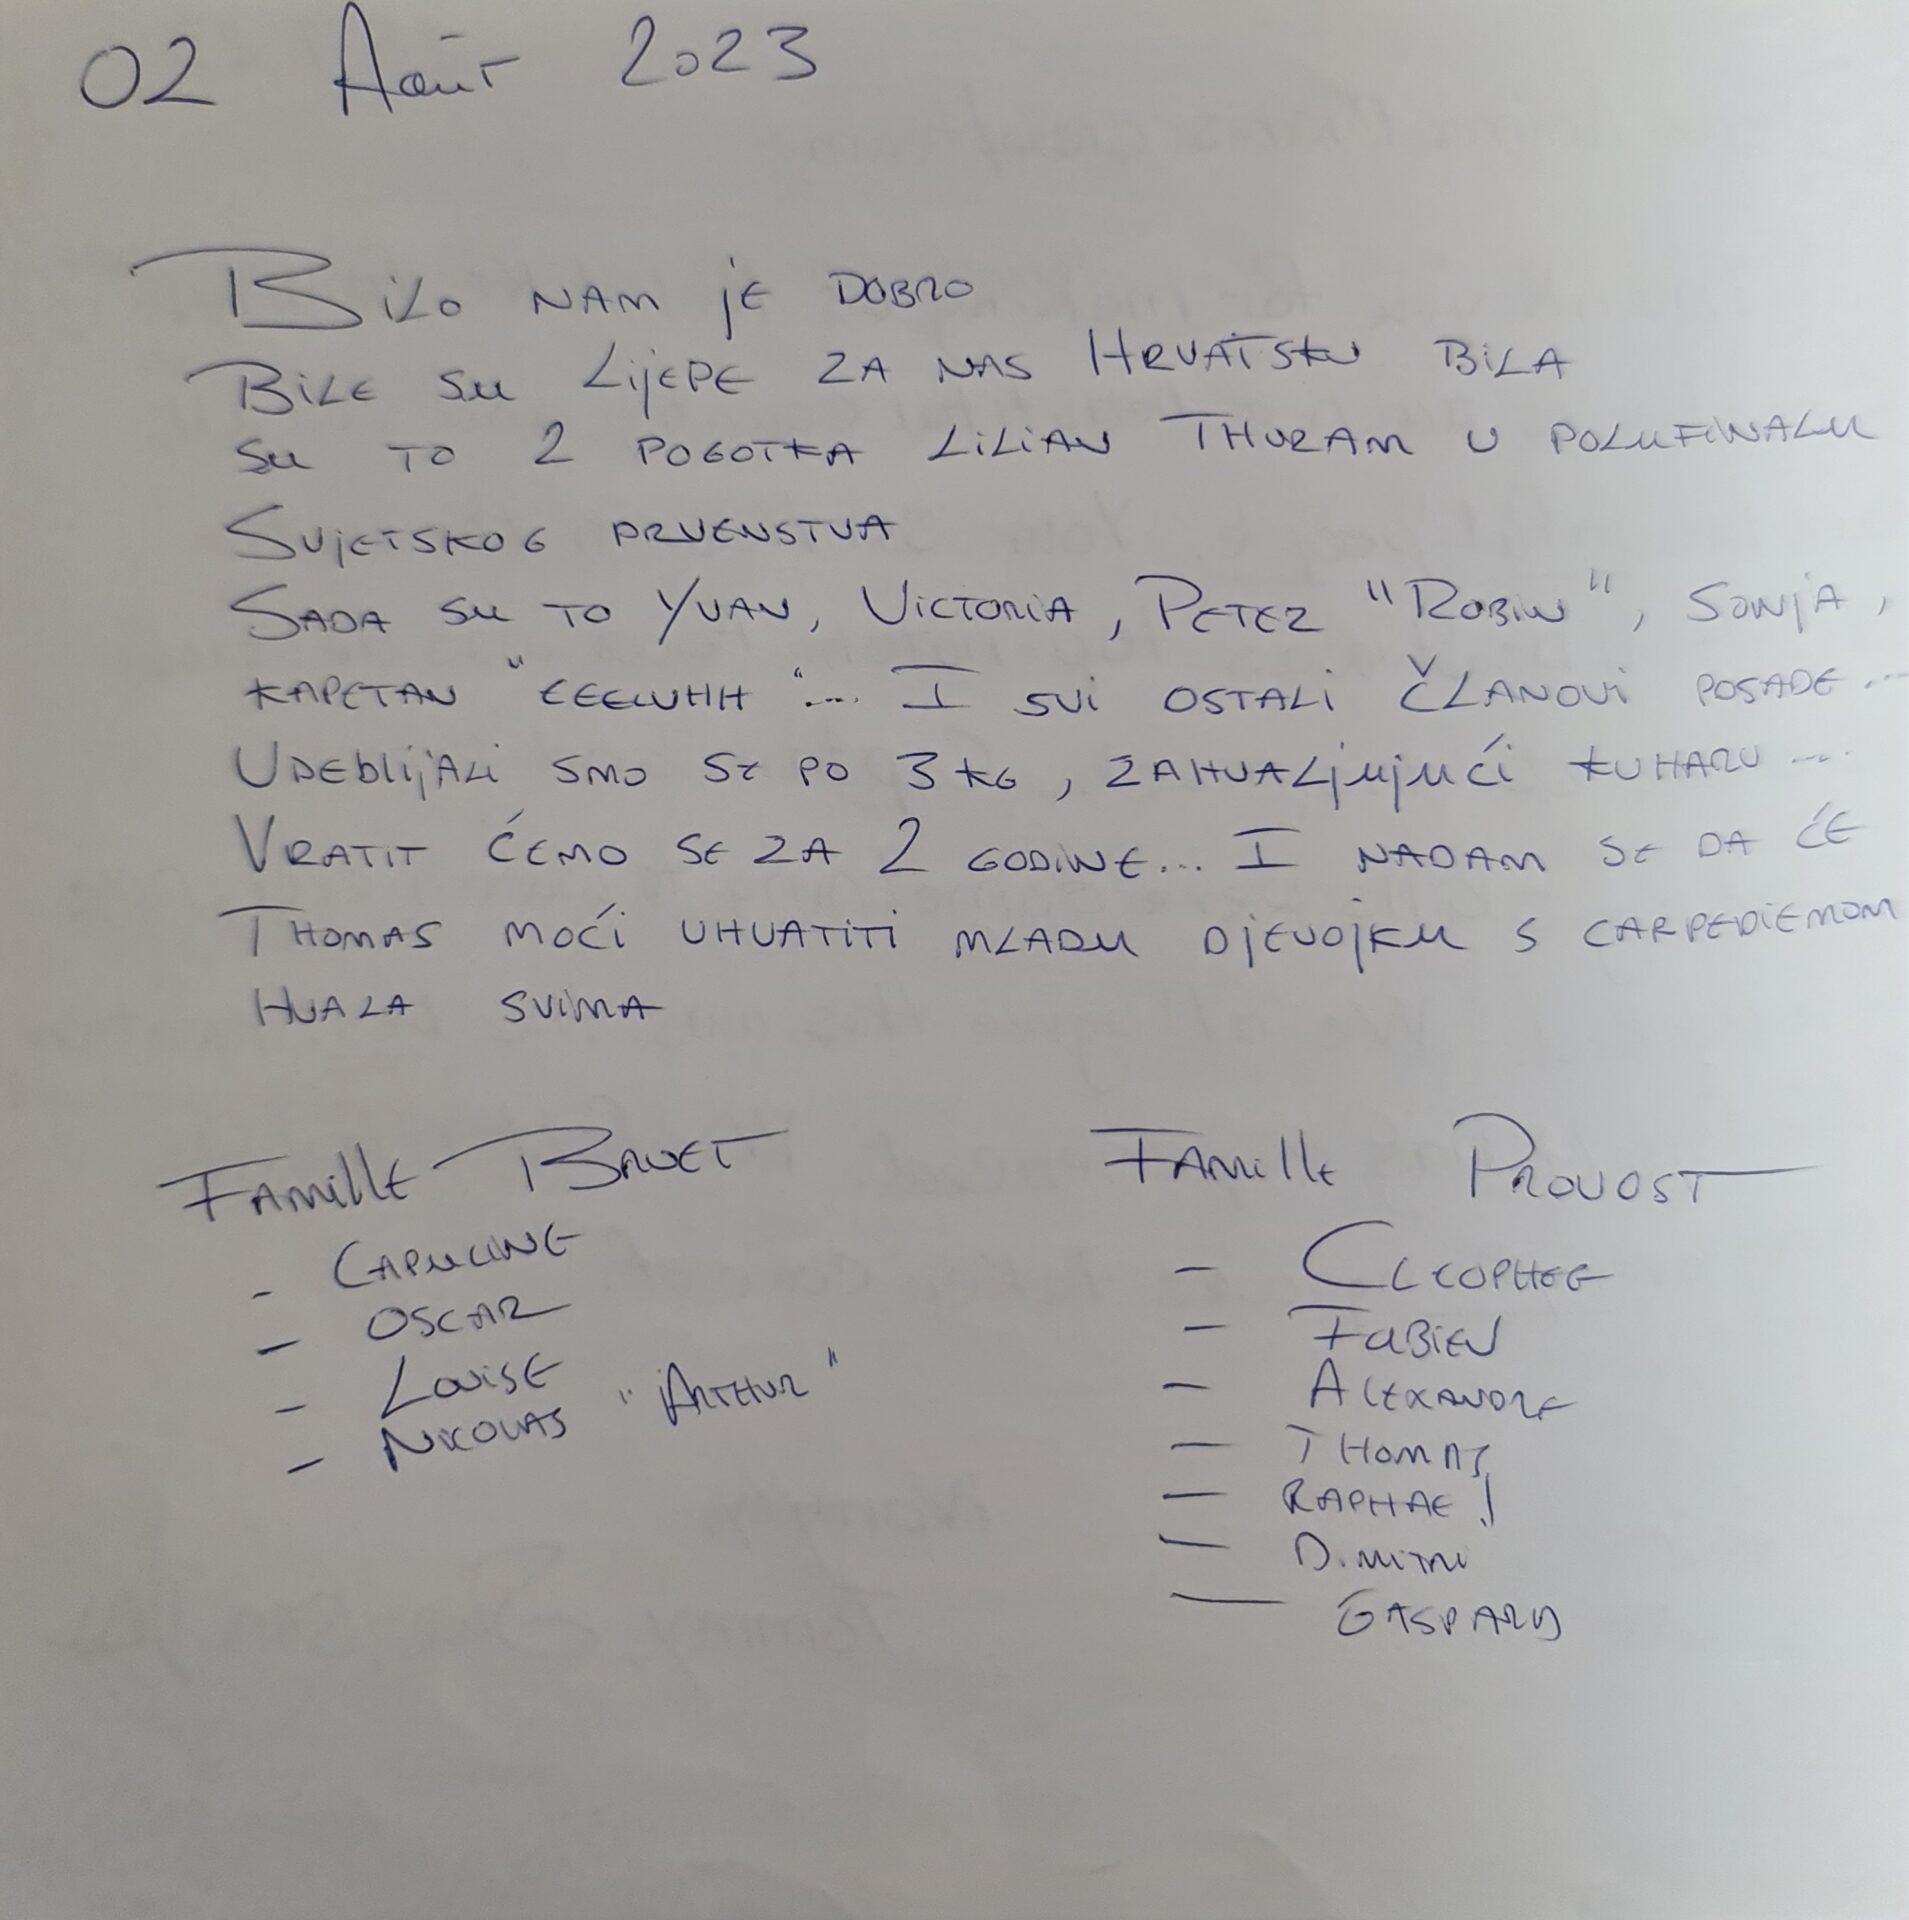 02 Août 2023
BILO NAM jE DOBRO
BILE SU LIjEPE ZA NAS HRVATSKU BILA
SU TO 2 POGOTKA LILIAN THURAM U POLUFINALU
SVjETSKOG PRVENSTVA
SADA SU TO YVAN, VICTORIA, PETER "ROBIN", SONjA,
KAPETAN "EEELUHH"... I SVI OSTALI ČLANOVI POSADE...
UDEblIjALI SMO SE PO 3 KG, ZAHVALjUjUĆI KUHARU...
VRATIT ĆEMO SE ZA 2 GODINE... I NADAM SE DA ĆE
THOMAS MOĆI UHVATITI MLADU DjEVOjKU S CARPEDIEMOM
HVALA SVIMA
FAMIllE BRUET
- CAPUCINE
- OSCAR
- LOUISE
- NICOLAS "ARTHUR"
FAMIllE PROVOST
- CLEOPHEE
- FABIEN
- ALEXANDRE
- THOMAS
- RAPHAEl
- DIMITRI
- GASPARD